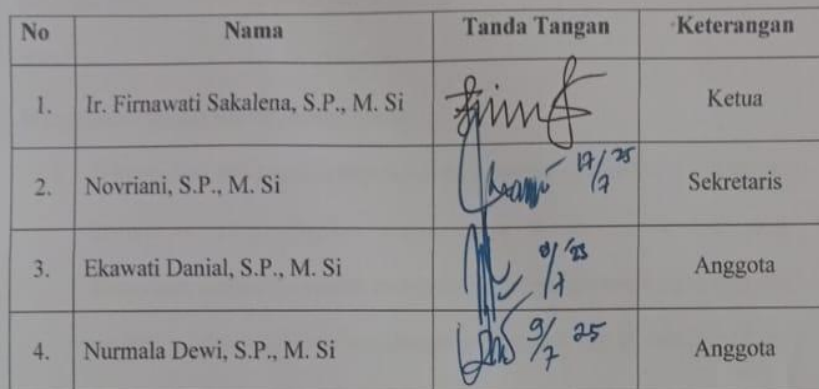 No Nama Tanda Tangan Keterangan
1. Ir. Firnawati Sakalena, S.P., M. Si Ketua
2. Novriani, S.P., M. Si 17/7 25 Sekretaris
3. Ekawati Danial, S.P., M. Si Anggota
4. Nurmala Dewi, S.P., M. Si 9/7 25 Anggota